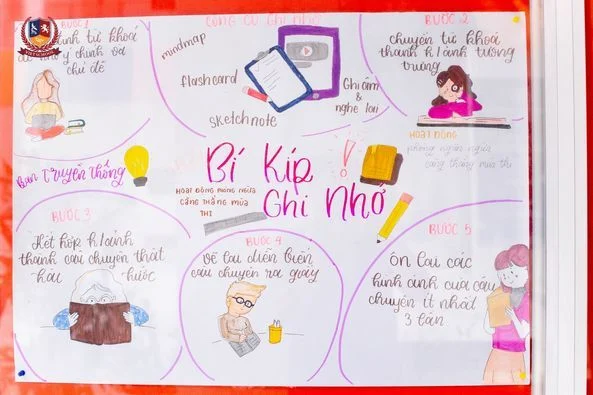 BƯỚC 1
hình từ khoá
ý chính và
chủ đề
CÔNG CỤ GHI NHỚ
mindmap
flashcard
sketchnote
Ghi âm
&
nghe lại
BƯỚC 2
chuyển từ khoá
thành h/ảnh tượng
trưng
HOẠT ĐỘNG
phòng ngừa
căng thẳng mùa thi
Ban Truyền Thông
Bí Kíp
Ghi Nhớ
HOẠT ĐỘNG PHÒNG NGỪA
CĂNG THẲNG MÙA
THI
BƯỚC 3
Kết hợp h/ảnh
thành câu chuyện thật
hài hước
BƯỚC 4
vẽ lại diễn biến
câu chuyện ra giấy
BƯỚC 5
ôn lại các
hình ảnh của câu
chuyện ít nhất
3 lần